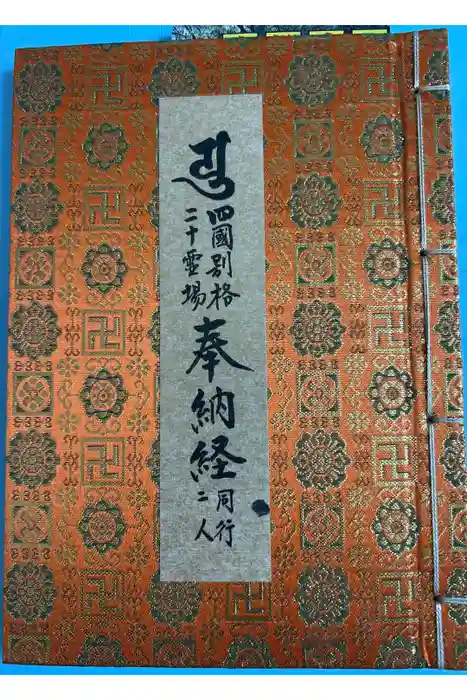 四國別格
二十霊場
奉納経
同行
二人